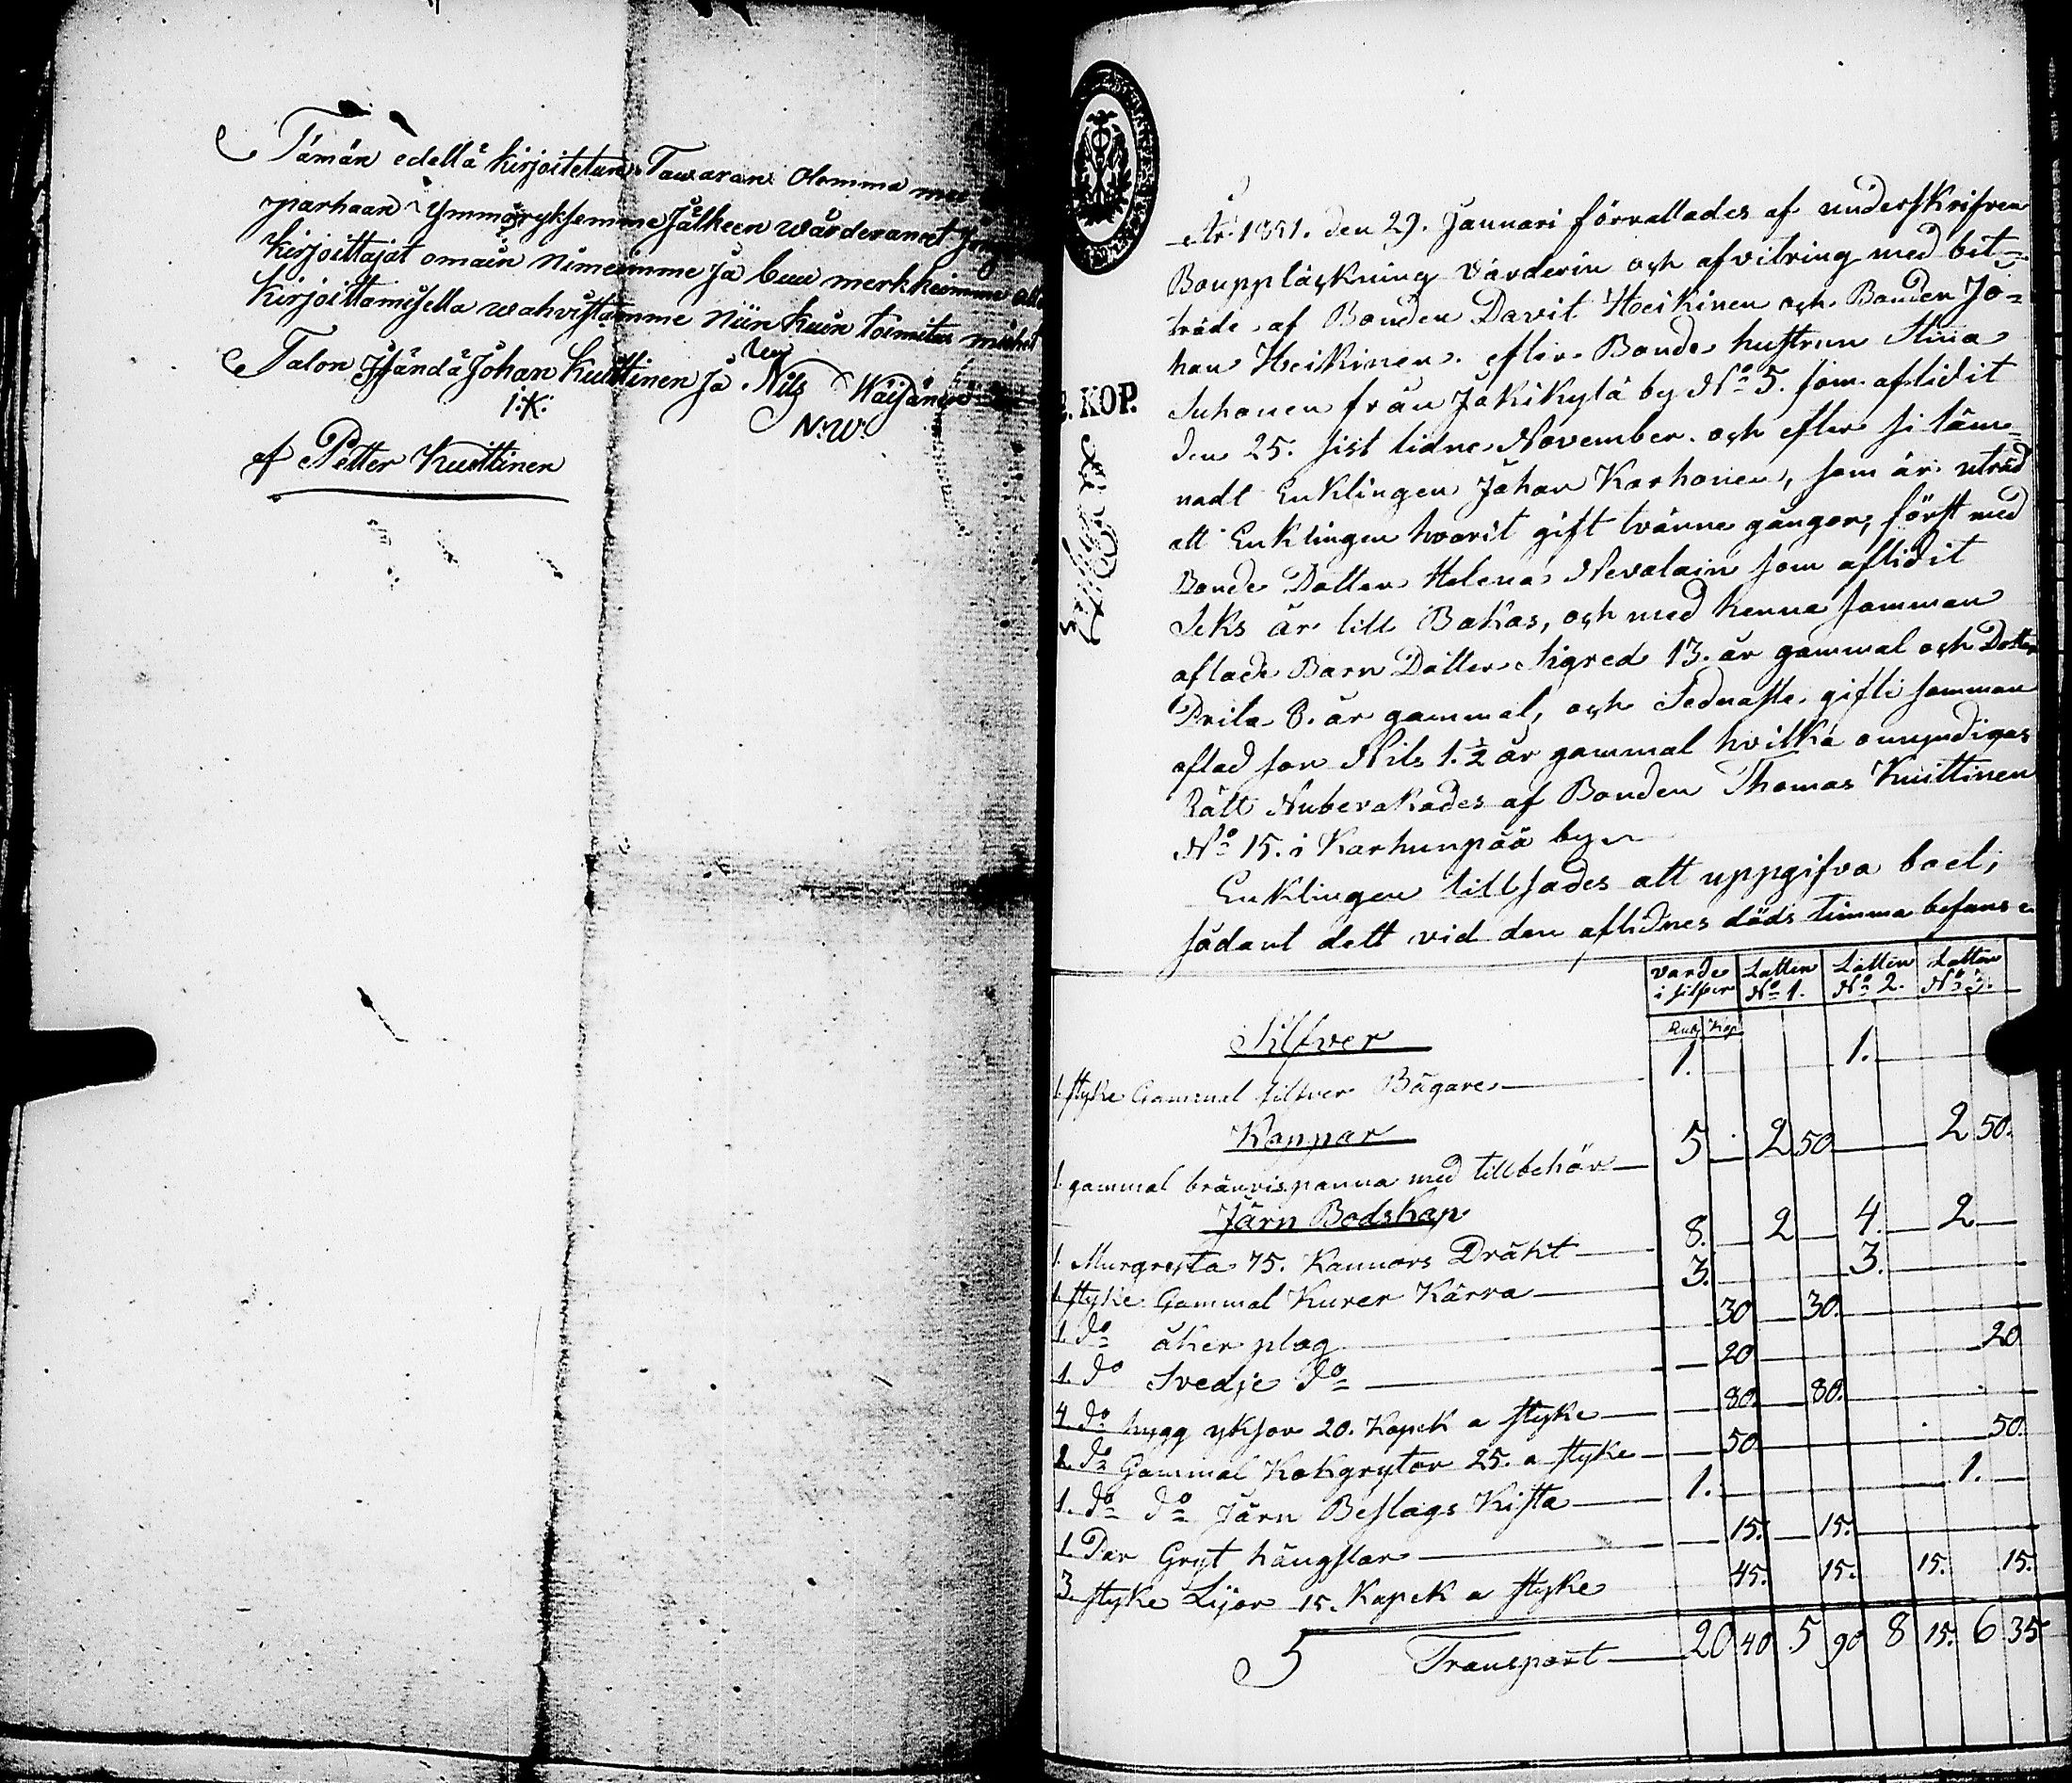 Tämän edellä kirjoitetun Tawaran olemma me
parhaan Ymmäryksemme Jälkeen wärderanet
kirjoittajat omain nimeimme ja buu merkkeimme
kirjoittamisella wahvistamme niin kuin toimitus miehet
Talon Isändä Johan Kuittinen ja Nils Wäisänen
I:K: N:W:
af Petter Kuittinen
2. KOP.
År 1851. den 29. Januari förrattades af underskrifven
Bouppläskning värderin och afvitring med bit-
träde af Bonden Davit Heikinen och Bonden Jo-
han Heikinen. efter Bonde hustrun Stina
Suhonen från Jokikylä by No 5. som aflidit
den 25. sist lidne November. och efter si läm-
nadt Enklingen Johan Karhonen, som är utråd
att Enklingen hvarit gift tvänne gånger, först med
Bonde Dotter Helena Nevalain som aflidit
Seks år till Bakas, och med henne samman
aflade Barn Dotter Sigred 13. år gammal och Dotter
Brita 8. år gammal, och Sednaste gifte samman
aflad son Nils 1.½ år gammal hvilka omyndigas
Rätt Nubevakades af Bonden Thomas Kuittinen
No 15. i Karhunpää by
Enklingen tillsades att uppgifva boet,
sådant dett vid den aflidnes döds timma befans
värde i silfver Lotten No 1. Lotten No 2. Lotten No 3.
Rub Kop
Silfver
1. styke Gammal silfver Bägare 1. 1.
Koppar
1. gammal bränvispanna med tillbehör 5 2 50 2 50.
Järn Bodskap
1. Murgryta 75. Kannors Dräkt 8. 2 4. 2
1. styke Gammal Kurer Kärra 3. 3.
1. do åker plog 30 30.
1. do Svedje do 20 20
4. do hygg yksor 20. Kopek a styke 80. 80.
2. do Gammal Kokgrytor 25. a styke 50 50.
1. do do Järn Beslags Kista 1. 1.
1. Par Gryt hängslar 15. 15.
3. styke Lijor 15. Kopek a styke 45. 15. 15. 15.
Transport 20 40 5 90 8 15. 6 35